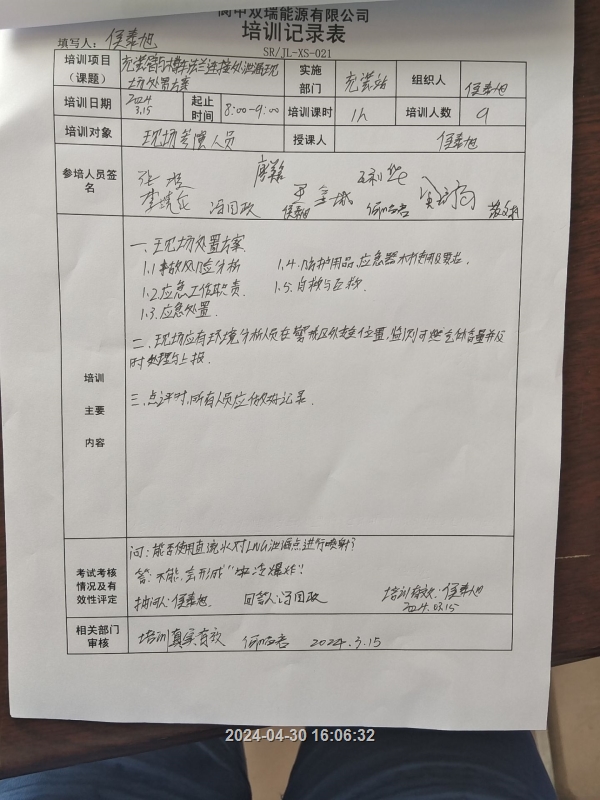 阆中双瑞能源有限公司
培训记录表
填写人：侯素旭
SR/JL-XS-021
培训项目（课题）
充装管与槽车法兰连接处泄漏现场处置方案
实施部门 充装站 组织人 侯素旭
培训日期 2024 3.15 起止时间 8:00-9:00 培训课时 1h 培训人数 9
培训对象 现场考演人员 授课人 侯素旭
参培人员签名
冯国政 侯素旭
培训主要内容
一、现场处置方案
1.1 事故风险分析 1.4. 防护用品、应急器材使用及要求.
1.2. 应急工作职责. 1.5. 自救与互救.
1.3. 应急处置.
二、现场应有环境分析人员在警戒区外安全位置,监测可燃气体含量并及
时处理与上报.
三、点评时,所有人员应做好记录.
考试考核情况及有效性评定
问:能否使用直流水对LNG泄漏点进行喷射?
答:不能,会形成"冷爆炸"!
提问人:侯素旭. 回答人:冯国政 培训有效:侯素旭
2024.03.15
相关部门审核
培训真实有效 2024.3.15
2024-04-30 16:06:32